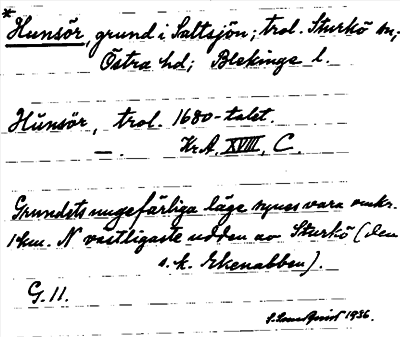 * Hunsör, grund i Saltsjön; trol. Sturkö sn;
Östra hd; Blekinge l.
Hünsör, trol. 1680-talet.
— . Kr.A. XVIII, C.
Grundets ungefärliga läge synes vara omkr.
1 km. N västligaste udden av Sturkö (den
s.k. Ekenabben).
G. 11.
1936.